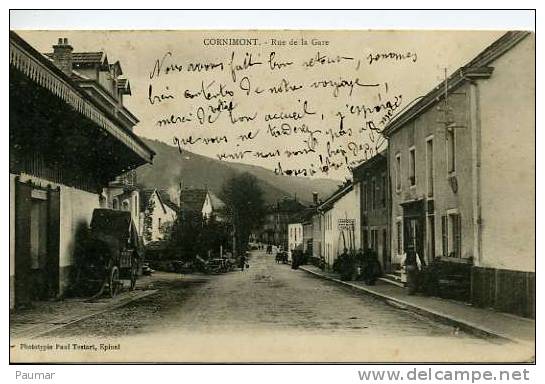 CORNIMONT. - Rue de la Gare
Nous avons fait bon retour, sommes
bien contents de notre voyage
merci de votre bon accueil, j'espère
que vous ne tarderez pas à
venir nous voir
Phototypie Paul Testart, Epinal
Paumar
http://www.delcampe.net